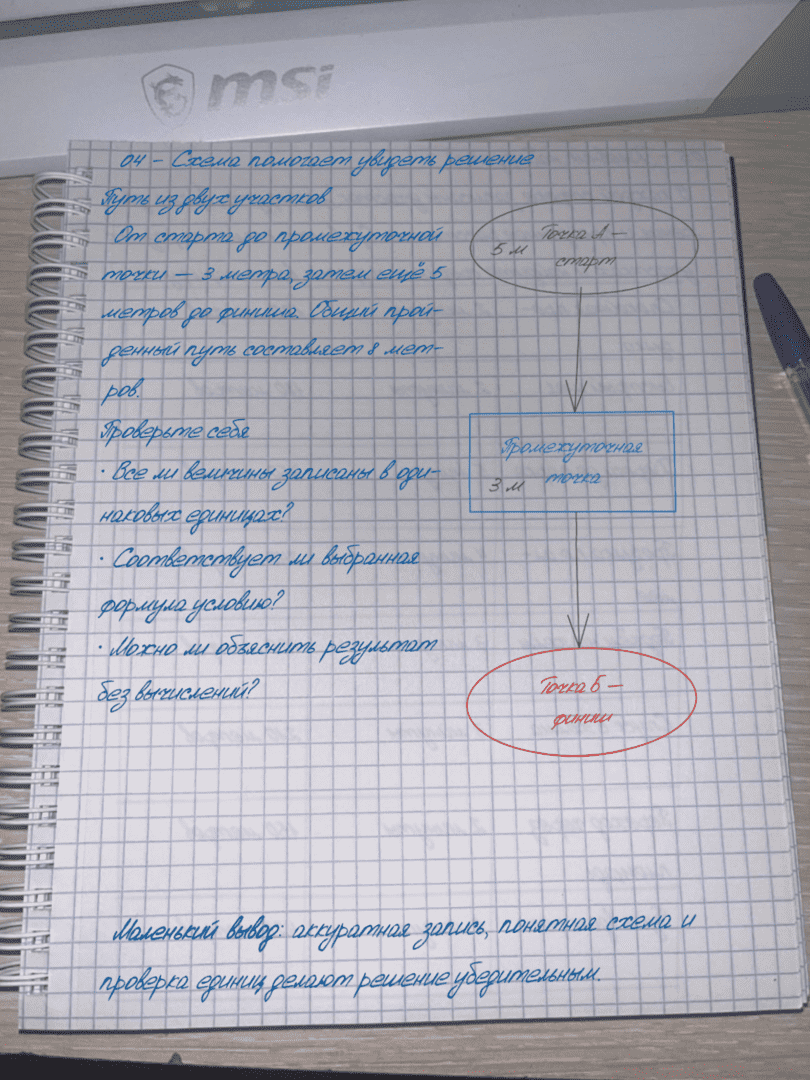 msi
04 – Схема помогает увидеть решение
Путь из двух участков
От старта до промежуточной
точки — 3 метра, затем ещё 5
метров до финиша. Общий прой-
денный путь составляет 8 мет-
ров.
Проверьте себя
· Все ли величины записаны в оди-
наковых единицах?
· Соответствует ли выбранная
формула условию?
· Можно ли объяснить результат
без вычислений?
Точка А —
5 м старт
Промежуточная
3 м точка
Точка Б —
финиш
Маленький вывод: аккуратная запись, понятная схема и
проверка единиц делают решение убедительным.